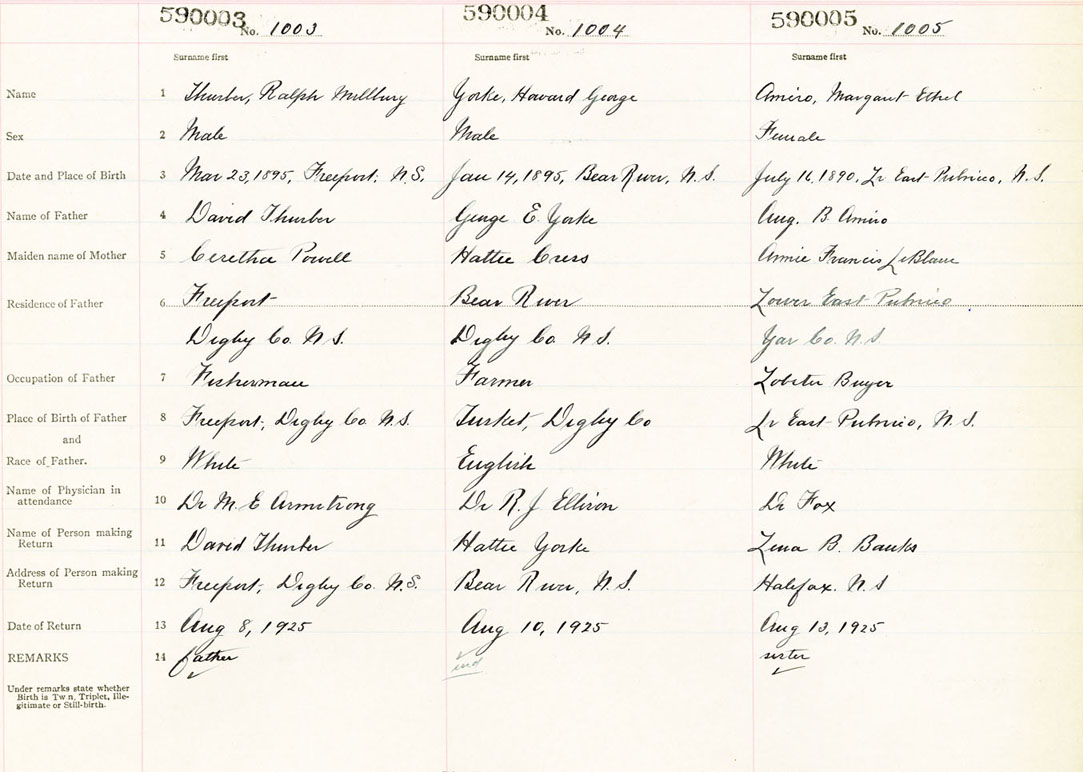 590003 No. 1003 590004 No. 1004 590005 No. 1005
Surname first Surname first Surname first
Name 1 Thurber, Ralph Millbury Yorke, Howard George Amiro, Margaret Ethel
Sex 2 Male Male Female
Date and Place of Birth 3 Mar 23, 1895, Freeport, N.S. Jan 14, 1895, Bear River, N.S. July 16, 1890, Lr East Pubnico, N.S.
Name of Father 4 David Thurber George E. Yorke Aug. B. Amiro
Maiden name of Mother 5 Ceretha Powell Hattie Cress Annie Francis LeBlanc
Residence of Father 6 Freeport Bear River Lower East Pubnico
Digby Co. N.S. Digby Co. N.S. Yar Co. N.S.
Occupation of Father 7 Fisherman Farmer Lobster Buyer
Place of Birth of Father 8 Freeport, Digby Co. N.S. Tusket, Digby Co Lr East Pubnico, N.S.
and
Race of Father. 9 White English White
Name of Physician in attendance 10 Dr M. E Armstrong Dr R. J Ellison Dr Fox
Name of Person making Return 11 David Thurber Hattie Yorke Lena B. Banks
Address of Person making Return 12 Freeport, Digby Co. N.S. Bear River, N.S. Halifax. N.S
Date of Return 13 Aug 8, 1925 Aug 10, 1925 Aug 13, 1925
REMARKS 14 father sister
Under remarks state whether
Birth is Twin, Triplet, Ille-
gitimate or Still-birth.